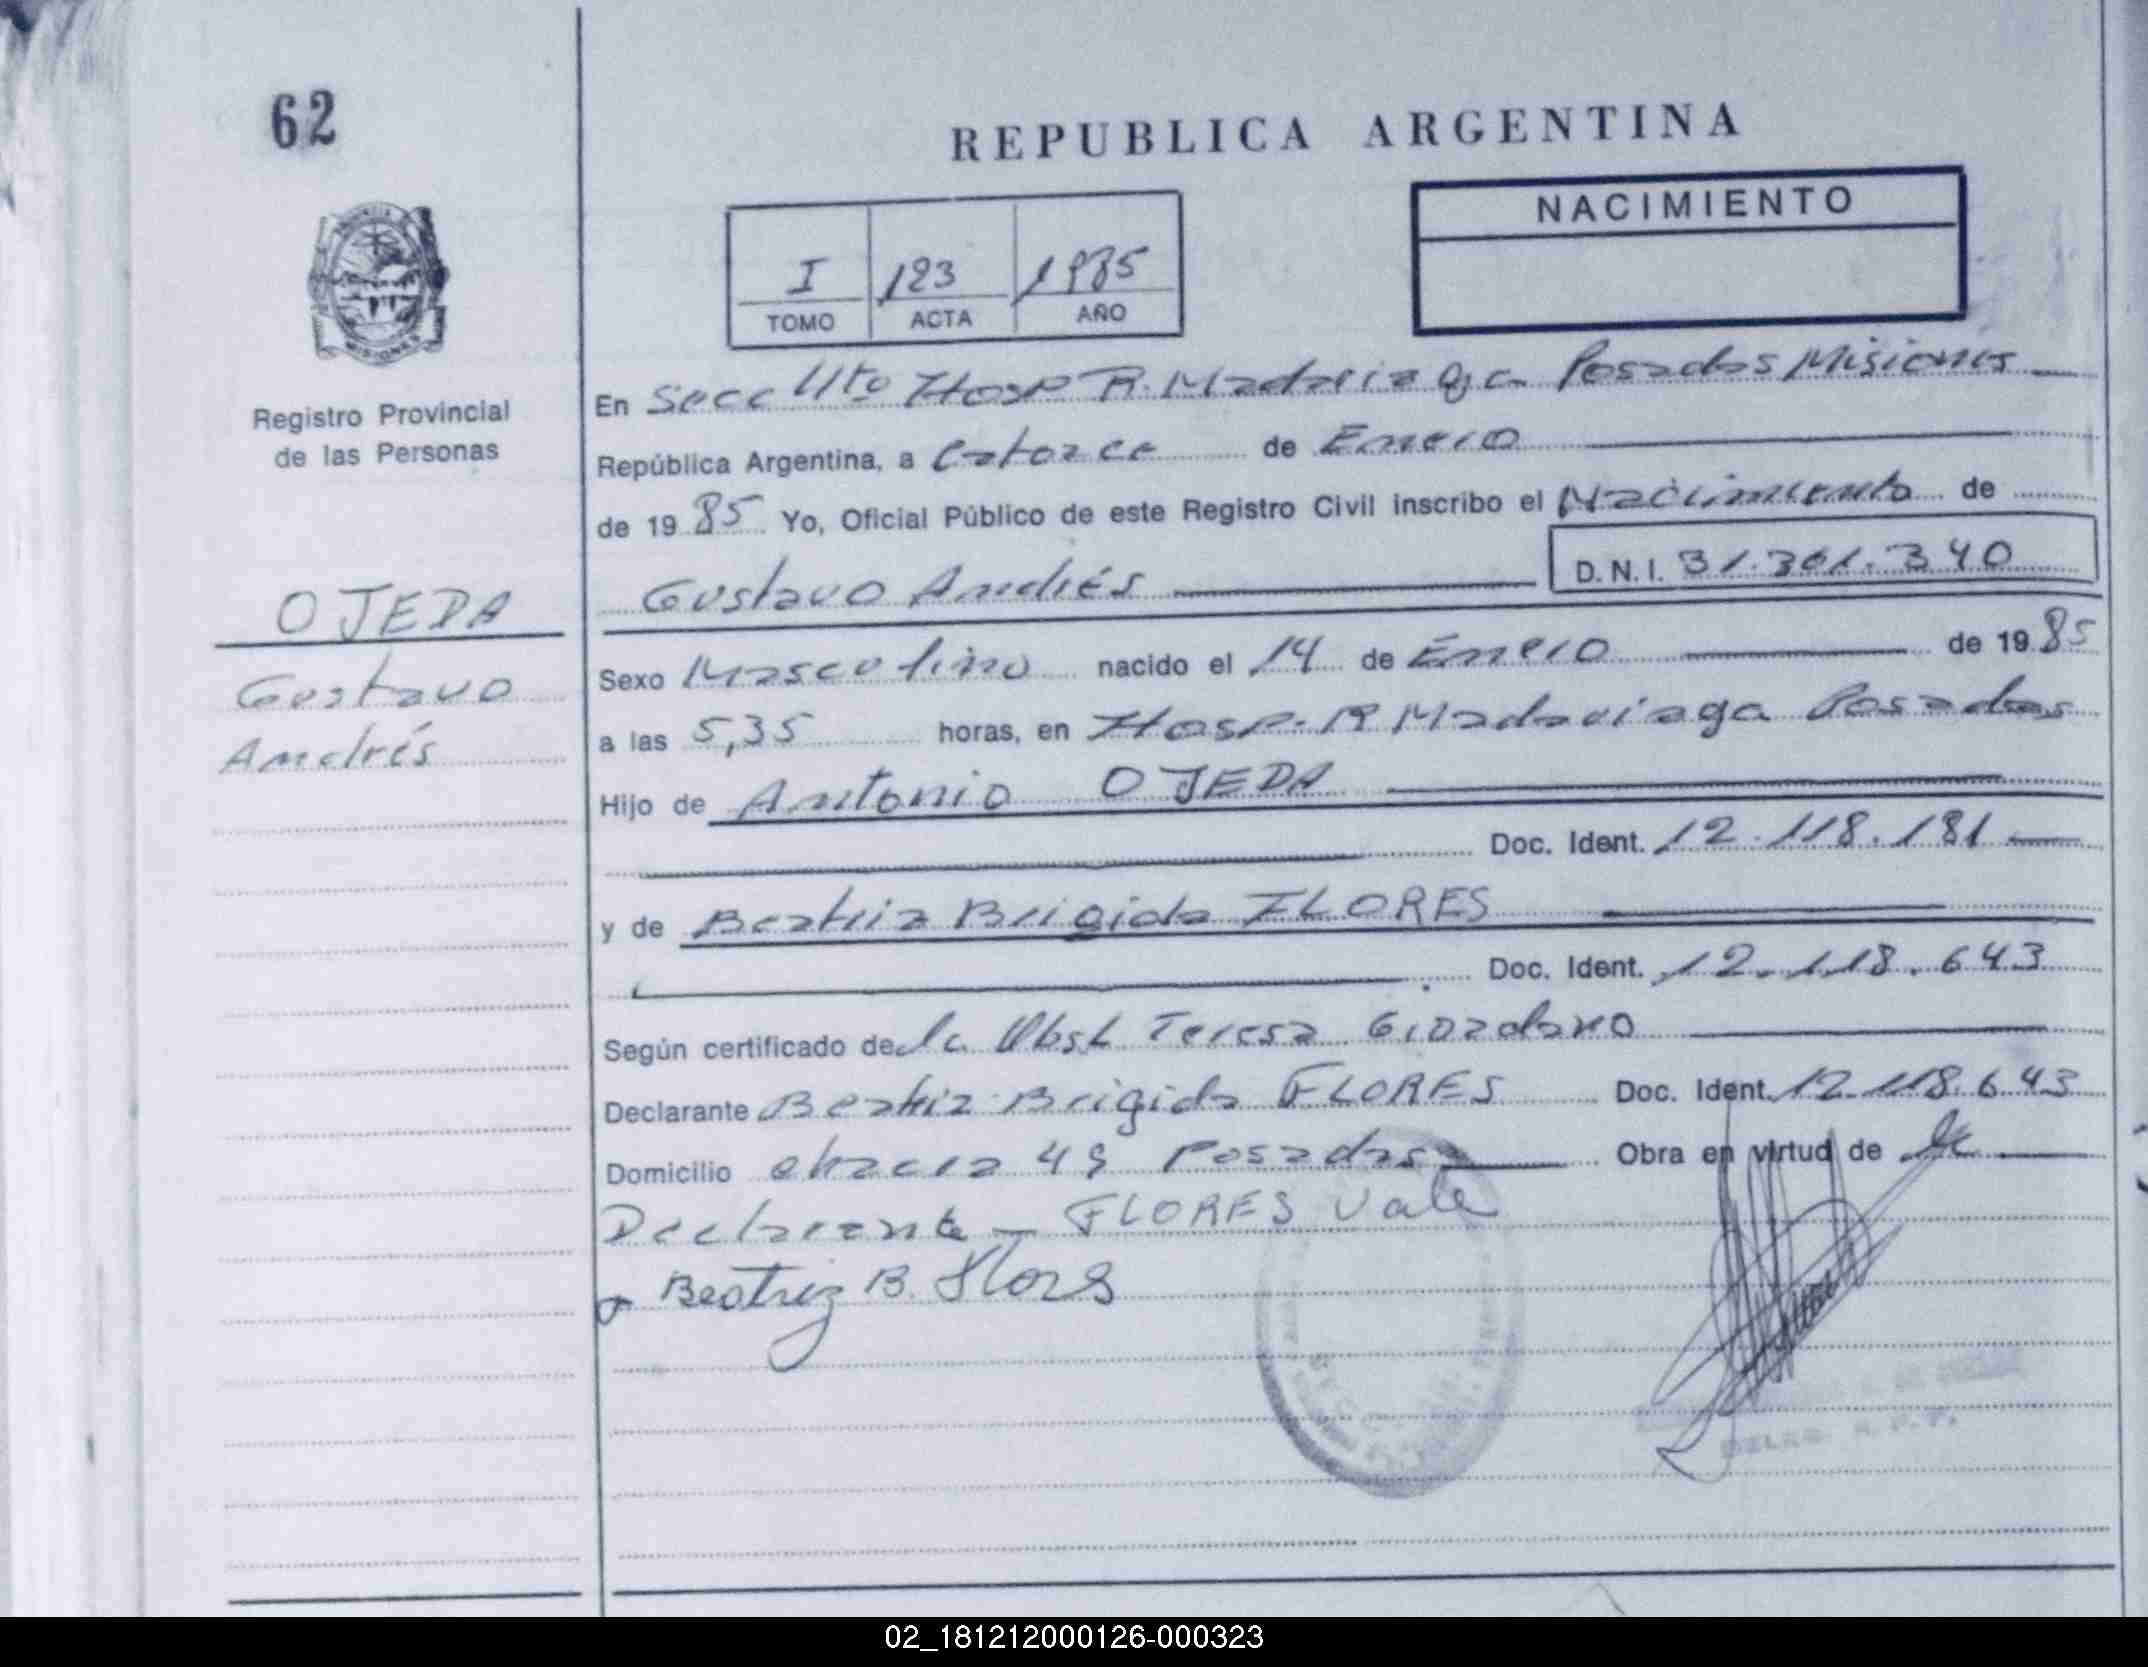 62
REPUBLICA ARGENTINA
NACIMIENTO
I 123 1985
TOMO ACTA AÑO
MISIONES
Registro Provincial
de las Personas
OJEDA
Gustavo
Andrés
En Secc 11to Hosp R. Madariaga Posadas Misiones
República Argentina, a Catorce de Enero
de 1985 Yo, Oficial Público de este Registro Civil inscribo el Nacimiento de
Gustavo Andrés D.N.I. 31.301.340
Sexo Masculino nacido el 14 de Enero de 1985
a las 5,35 horas, en Hosp. R Madariaga Posadas
Hijo de Antonio OJEDA
Doc. Ident. 12.118.181
y de Beatriz Brigida FLORES
Doc. Ident. 12.118.643
Según certificado de la Obst Teresa Giordano
Declarante Beatriz Brigida FLORES Doc. Ident. 12.118.643
Domicilio chacra 49 Posadas Obra en virtud de
Declarante - FLORES Vale
Beatriz B. Flores
02_181212000126-000323